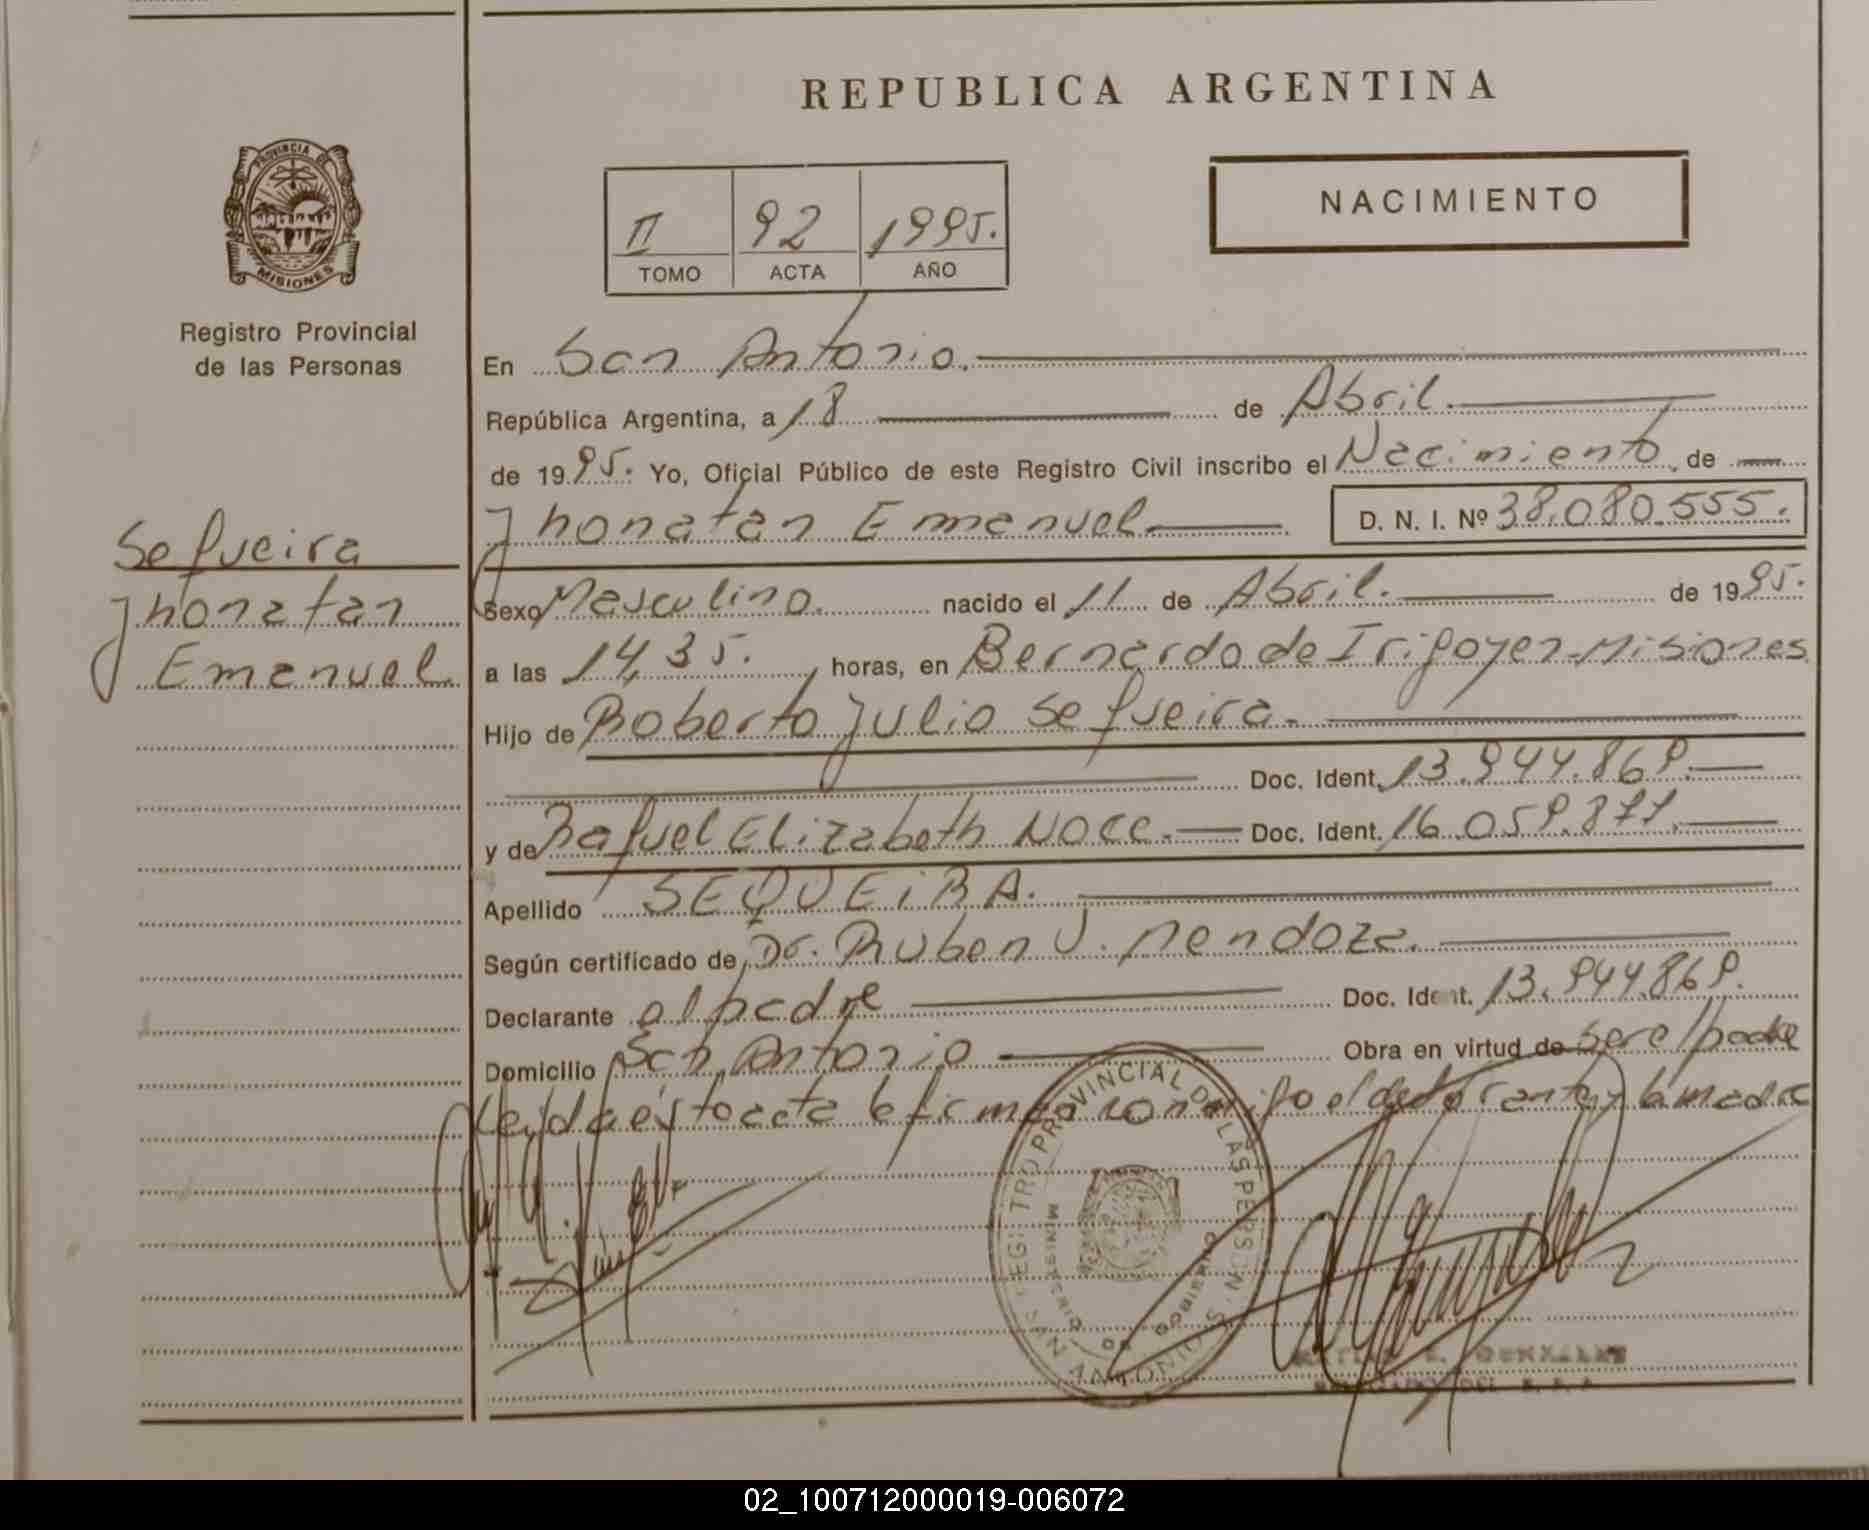 REPUBLICA ARGENTINA
PROVINCIA DE
MISIONES
Registro Provincial
de las Personas
II 92 1995.
TOMO ACTA AÑO
NACIMIENTO
En San Antonio.
República Argentina, a 18 de Abril.
de 1995. Yo, Oficial Público de este Registro Civil inscribo el Nacimiento, de
Jhonatan Emanuel D. N. I. Nº 38.080.555.
Sequeira
Jhonatan
Emanuel.
Sexo Masculino. nacido el 11 de Abril. de 1995.
a las 14,35. horas, en Bernardo de Irigoyen-Misiones
Hijo de Roberto Julio Sequeira.
Doc. Ident. 13.944.869.
y de Raquel Elizabeth Doc. Ident. 16.059.877.
Apellido SEQUEiRA.
Según certificado de Dr. Ruben J. Mendoza.
Declarante el padre Doc. Ident. 13.944.869.
Domicilio San Antonio Obra en virtud de ser el padre
Leida esta acta la firman conmigo el declarante y la madre
REGISTRO PROVINCIAL DE LAS PERSONAS
MINISTERIO DE GOBIERNO
SAN ANTONIO
02_100712000019-006072